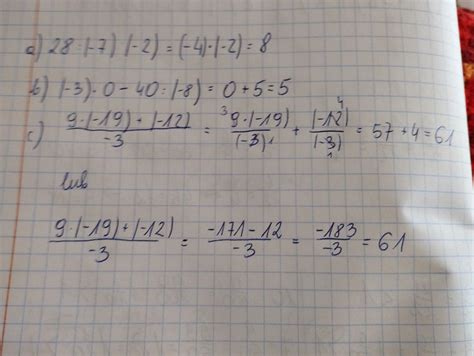 a) 28 : (-7) · (-2) = (-4) · (-2) = 8
b) (-3) · 0 - 40 : (-8) = 0 + 5 = 5
c) 9 · (-19) + (-12) / -3 = ³9 · (-19) / (-3)₁ + (-12)⁴ / (-3)₁ = 57 + 4 = 61
lub
9 · (-19) + (-12) / -3 = -171 - 12 / -3 = -183 / -3 = 61